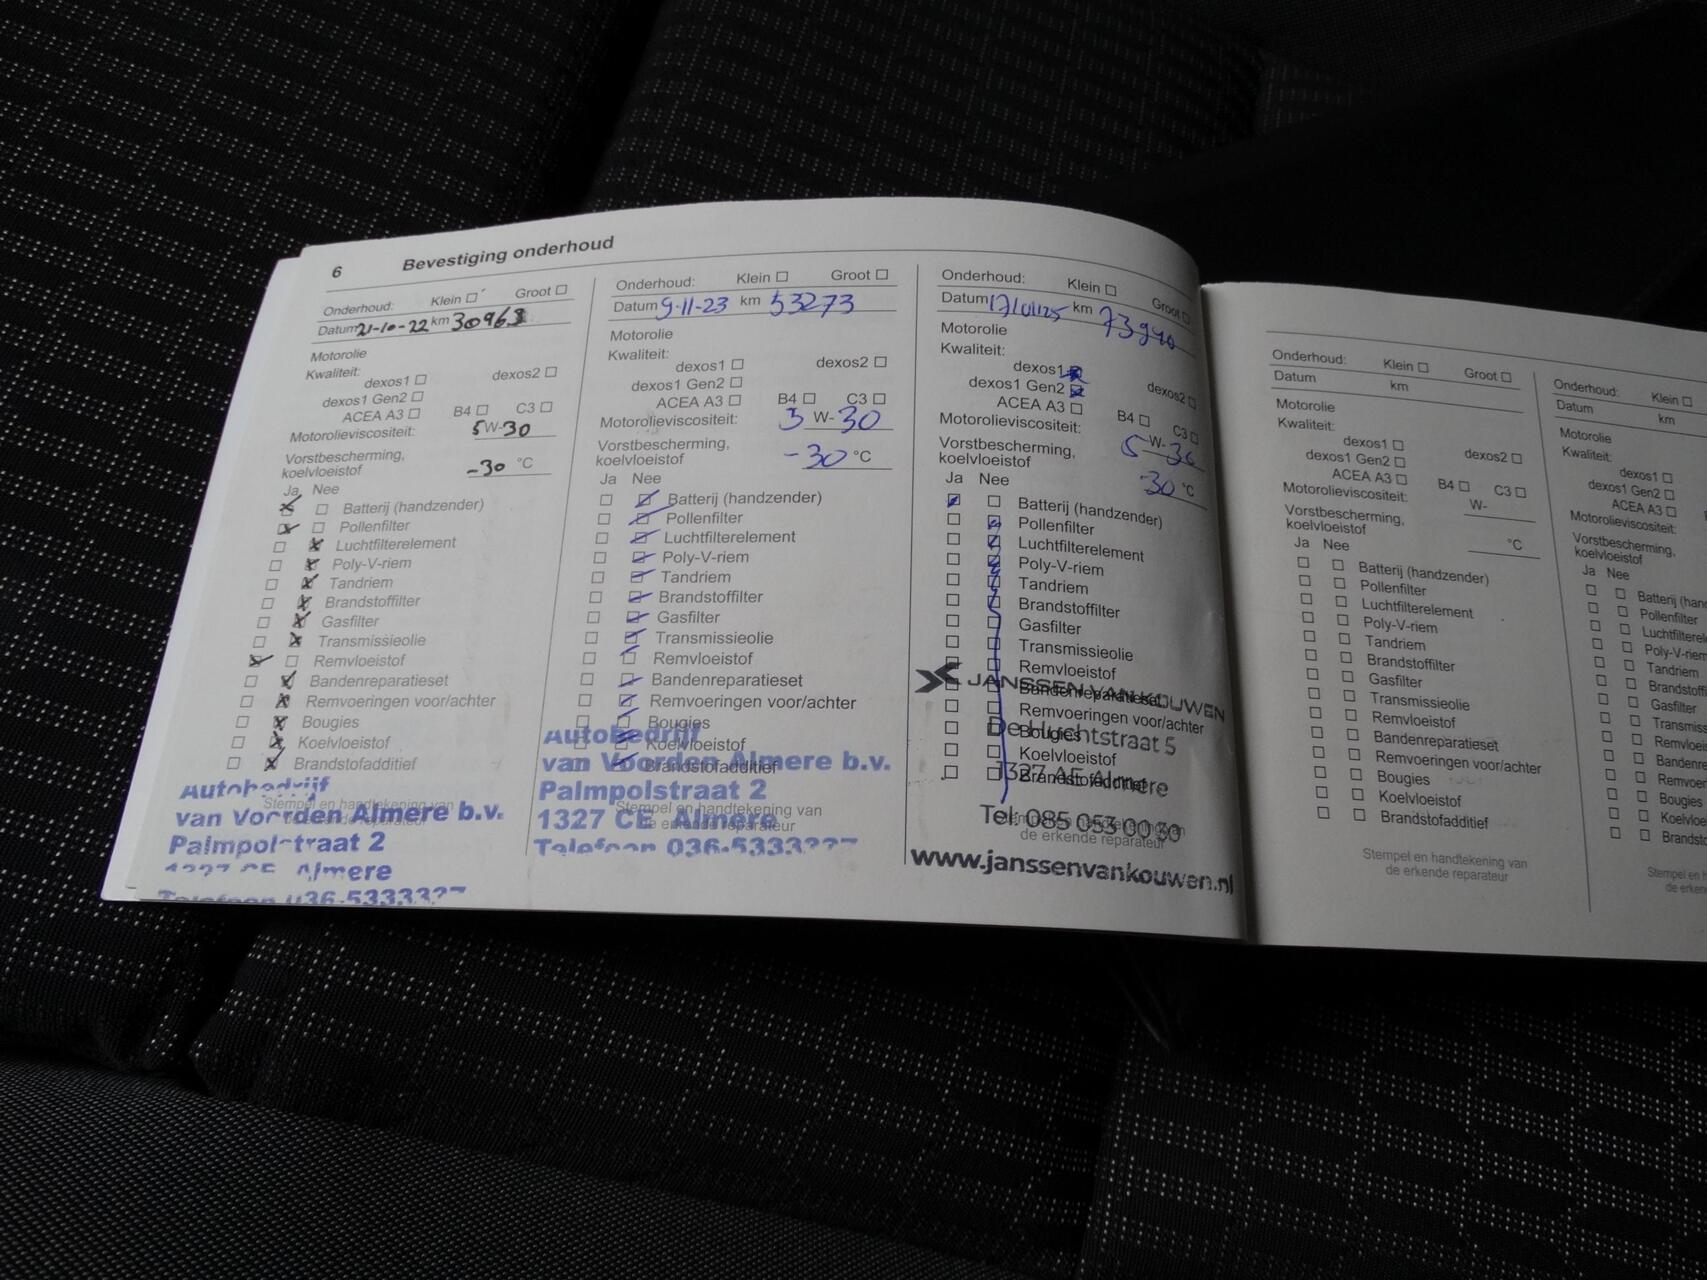 6 Bevestiging onderhoud
Onderhoud: Klein Groot
Datum 21-10-22 km 30963
Motorolie
Kwaliteit:
dexos1 dexos2
dexos1 Gen2
ACEA A3 B4 C3
Motorolieviscositeit: 5 W-30
Vorstbescherming,
koelvloeistof -30 °C
Ja Nee
Batterij (handzender)
Pollenfilter
Luchtfilterelement
Poly-V-riem
Tandriem
Brandstoffilter
Gasfilter
Transmissieolie
Remvloeistof
Bandenreparatieset
Remvoeringen voor/achter
Bougies
Koelvloeistof
Brandstofadditief
Stempel en handtekening van
Autobedrijf
van Voorden Almere b.v.
Palmpolstraat 2
1327 CE Almere
Telefoon 036-5333327
Onderhoud: Klein Groot
Datum 9-11-23 km 53273
Motorolie
Kwaliteit:
dexos1 dexos2
dexos1 Gen2
ACEA A3 B4 C3
Motorolieviscositeit: 5 W-30
Vorstbescherming,
koelvloeistof -30 °C
Ja Nee
Batterij (handzender)
Pollenfilter
Luchtfilterelement
Poly-V-riem
Tandriem
Brandstoffilter
Gasfilter
Transmissieolie
Remvloeistof
Bandenreparatieset
Remvoeringen voor/achter
Bougies
Koelvloeistof
Brandstofadditief
Stempel en handtekening van
de erkende reparateur
Autobedrijf
van Voorden Almere b.v.
Palmpolstraat 2
1327 CE Almere
Telefoon 036-5333327
Onderhoud: Klein Groot
Datum 17/01/25 km 73940
Motorolie
Kwaliteit:
dexos1
dexos1 Gen2 dexos2
ACEA A3 B4 C3
Motorolieviscositeit: 5 W-30
Vorstbescherming,
koelvloeistof -30 °C
Ja Nee
Batterij (handzender)
Pollenfilter
Luchtfilterelement
Poly-V-riem
Tandriem
Brandstoffilter
Gasfilter
Transmissieolie
Remvloeistof
Bandenreparatieset
Remvoeringen voor/achter
Bougies
Koelvloeistof
Brandstofadditief
de erkende reparateur
JANSSEN VAN KOUWEN
De Huchtstraat 5
1327 AE Almere
Tel. 085 053 00 30
www.janssenvankouwen.nl
Onderhoud: Klein Groot
Datum km
Motorolie
Kwaliteit:
dexos1 dexos2
dexos1 Gen2
ACEA A3 B4 C3
Motorolieviscositeit: W-
Vorstbescherming,
koelvloeistof °C
Ja Nee
Batterij (handzender)
Pollenfilter
Luchtfilterelement
Poly-V-riem
Tandriem
Brandstoffilter
Gasfilter
Transmissieolie
Remvloeistof
Bandenreparatieset
Remvoeringen voor/achter
Bougies
Koelvloeistof
Brandstofadditief
Stempel en handtekening van
de erkende reparateur
Onderhoud: Klein
Datum km
Motorolie
Kwaliteit:
dexos1
dexos1 Gen2
ACEA A3
Motorolieviscositeit:
Vorstbescherming,
koelvloeistof
Ja Nee
Batterij (han
Pollenfilter
Luchtfilterel
Poly-V-riem
Tandriem
Brandstoffi
Gasfilter
Transmiss
Remvloei
Bandenre
Remvoer
Bougies
Koelvloe
Brandst
Stempel en h
de erken